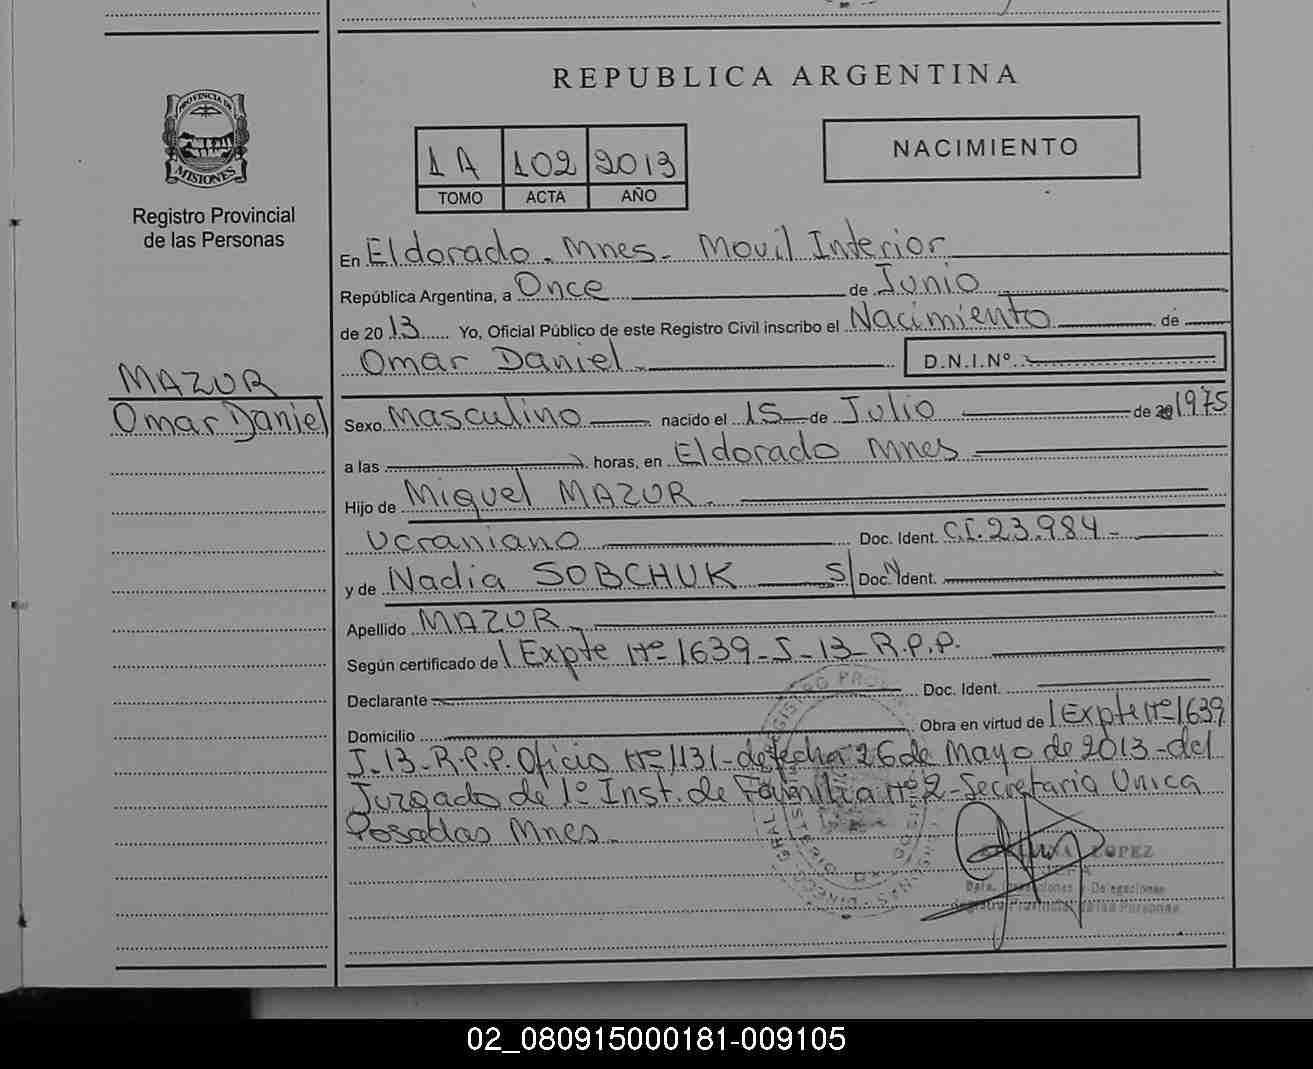 REPUBLICA ARGENTINA
PROVINCIA DE
MISIONES
Registro Provincial
de las Personas
1A 102 2013
TOMO ACTA AÑO
NACIMIENTO
En Eldorado. Mnes. Movil Interior
República Argentina, a Once de Junio
de 2013 Yo, Oficial Público de este Registro Civil inscribo el Nacimiento de
Omar Daniel D.N.I.Nº
MAZUR
Omar Daniel
Sexo Masculino nacido el 15 de Julio de 1975
a las horas, en Eldorado Mnes
Hijo de Miguel MAZUR.
Ucraniano Doc. Ident. C.I. 23.984
y de Nadia SOBCHUK S/ Doc. Ident.
Apellido MAZUR
Según certificado de Expte Nº 1639-J-13-R.P.P.
Declarante Doc. Ident.
Domicilio Obra en virtud de Expte Nº 1639
J-13-R.P.P. Oficio Nº 1131-de fecha 26 de Mayo de 2013-del
Juzgado de 1º Inst. de Familia Nº 2-Secretaria Unica
Posadas Mnes.
LOPEZ
Delegaciones
Registro Provincial de las Personas
02_080915000181-009105